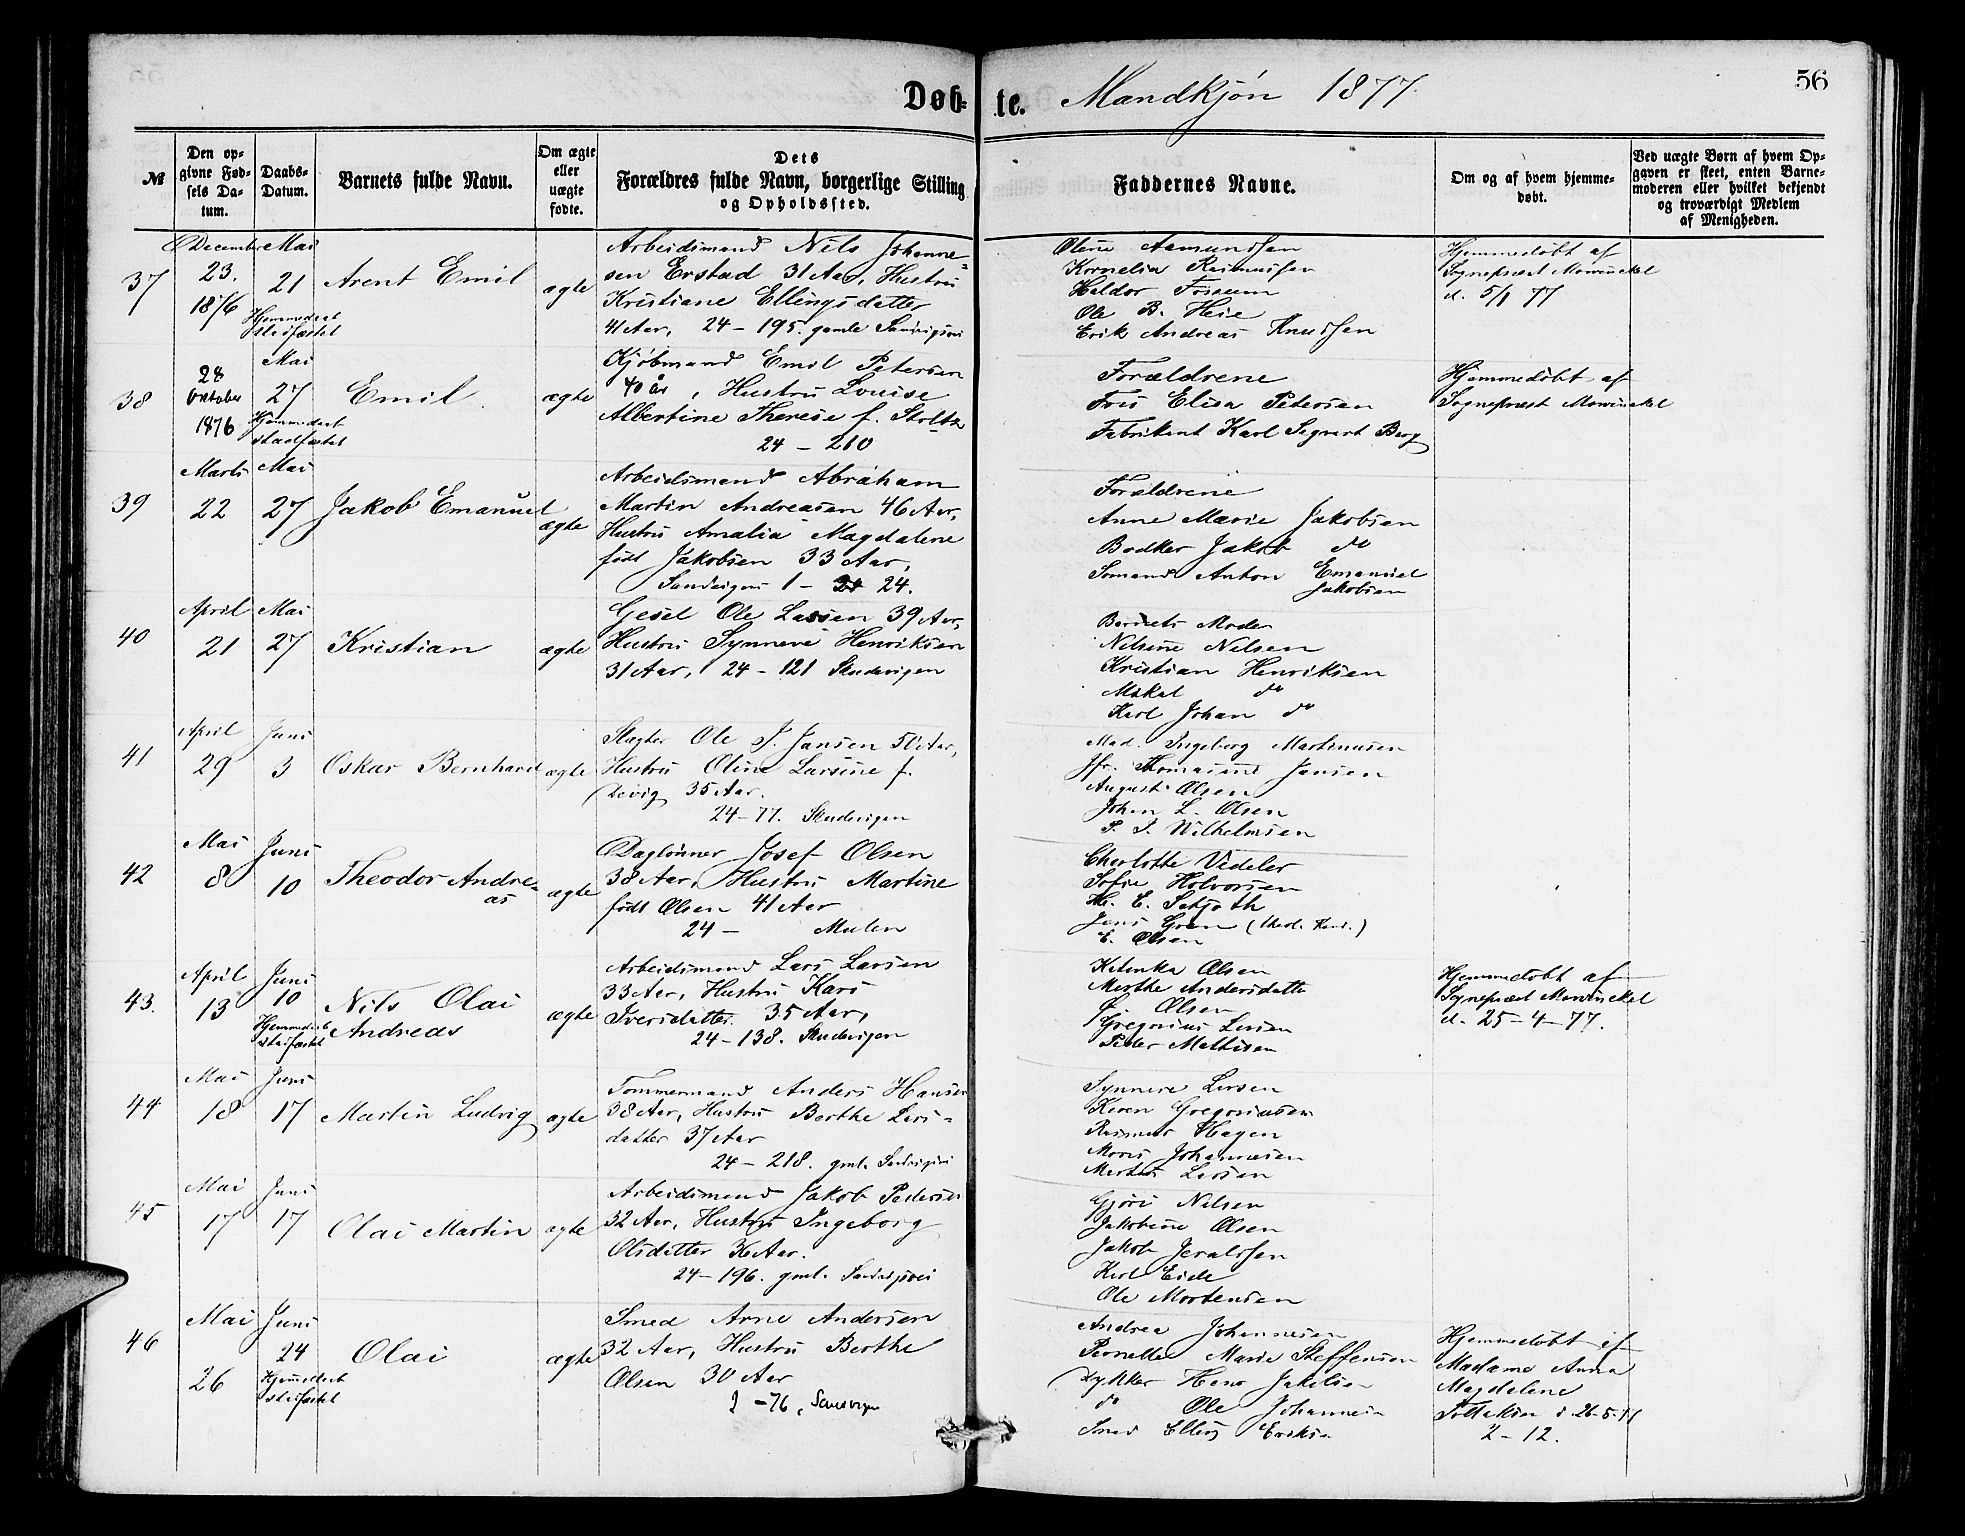 Døb-te. Mandkjøn 1877.
56
№
Den op-
givne Fød-
sels Da-
tum.
Daabs-
Datum.
Barnets fulde Navn.
Om ægte
eller
uægte
fødte.
Dets
Forældres fulde Navn, borgerlige Stilling
og Opholdssted.
Faddernes Navne.
Om og af hvem hjemme-
døbt.
Ved uægte Børn af hvem Op-
gaven er skeet, enten Barne-
moderen eller hvilket bekjendt
og troværdigt Medlem
af Menigheden.
37
December
23.
1876
Mai
21
Hjemmedaab
stadfæstet
Arent Emil
ægte
Arbeidsmand Nils Johanne-
sen Erstad 31 Aar, Hustru
Kristiane Ellingsdatter
41 Aar, 24 - 195. gamle Sandvigsvei
Oline Aamundsen
Kornelia Rasmussen
Haldor Fossum
Ole B. Heie
Erik Andreas Knudsen
Hjemmedøbt af
Sognepræst Mowinckel
d. 5/1 77
38
28
Oktober
1876
Mai
27
Hjemmedaab
stadfæstet
Emil
ægte
Kjøbmand Emil Petersen
40 år, Hustru Louise
Albertine Therese f. Stoltz
24 - 210
Forældrene
Frø Elisa Petersen
Fabrikant Karl Segvart Berg
Hjemmedøbt af
Sognepræst Mowinckel
39
Marts
22
Mai
27
Jakob Emanuel
ægte
Arbeidsmand Abraham
Martin Andreasen 46 Aar,
Hustru Amalia Magdalene
født Jakobsen 33 Aar,
Sandvigen 1 - 24.
Forældrene
Anne Marie Jakobsen
Bødker Jakob do
Sømand Anton Emanuel
Jakobsen
40
April
21
Mai
27
Kristian
ægte
Gesel Ole Lassen 39 Aar,
Hustru Synneve Henriksen
31 Aar, 24 - 121 Skudevigen
Barnets Moder
Nilsine Nilsen
Kristian Henriksen
Mikal do
Karl Johan do
41
April
29
Juni
3
Oskar Bernhard
ægte
Slagter Ole J. Jansen 50 Aar,
Hustru Oline Larsine f.
Devig 35 Aar.
24-77. Skudevigen
Mad. Ingeborg Martinusen
Jfr. Thomasine Jansen
August Olsen
Johan L. Olsen
P. J. Wilhelmsen
42
Mai
8
Juni
10
Theodor Andre-
as
ægte
Daglønner Josef Olsen
38 Aar, Hustru Martine
født Olsen 41 Aar
24 - Mulen
Charlotte Vedeler
Sofie Halvorsen
H. E. Setjoth
Jens Gran (theol. Kand.)
E. Olsen
43.
April
13
Juni
10
Hjemmedaab
stadfæstet
Nils Olai
Andreas
ægte
Arbeidsmand Lars Larsen
33 Aar, Hustru Kari
Iversdatter 35 Aar,
24-138. Skudevigen
Katinka Olsen
Merthe Andersdatter
Olsen
Gregorius Larsen
Peder Mathisen
Hjemmedøbt af
Sognepræst Mowinckel
d. 25-4-77.
44
Mai
18
Juni
17
Martin Ludvig
ægte
Tømmermand Anders Hansen
38 Aar, Hustru Berthe Lars-
datter 37 Aar
24 - 218. gml. Sandvigsvei
Synneve Larsen
Karen Gregoriusen
Rasmus Hagen
Mons Johannesen
Larsen
45
Mai
17
Juni
17
Olai Martin
ægte
Arbeidsmand Jakob Pedersen
32 Aar, Hustru Ingeborg
Olsdatter Aar.
24-196. gml. Sandvigsvei
Gjøri Nilsen
Jakobine Olsen
Jakob
Karl Eide
Ole Mortensen
46
Mai
26
Juni
24
Hjemmedaab
stadfæstet
Olai
ægte
Smed Arne Andersen
32 Aar, Hustru Berthe
Olsen 30 Aar
2 - 76, Sandvigen
Andrea Johannesen
Pernelle Marie Steffensen
Dykker Hans Jakobsen
do Ole Johannesen
Smed Elling Eriksen
Hjemmedøbt af
Madame Anna
Magdalene
26-5-77
2-12.